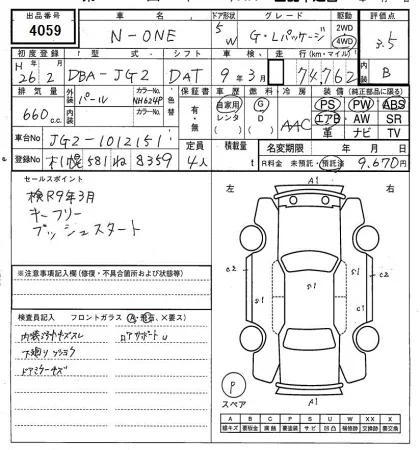 出品番号 車名 ドア形状 グレード 駆動 評価点
4059 N-ONE 5W G・Lパッケージ 2WD 4WD 3.5
初度登録 型式 シフト 車検 走行(km・マイル) 内装
H26年2月 DBA-JG2 DAT 9年3月 74,762 B
排気量 外装色 カラーNo. 色替 保証書 車歴 燃料 冷房 装備(純正部品に限る)
660c.c. パール NH624P 有・無 自家用 レンタ G D AAC PS PW ABS
エアB AW SR
革 ナビ TV
車台No JG2-1012151 定員 積載量 名変期限 年 月 日
登録No 札幌581ね8359 4人 t R料金 未預託・預託済 9,670円
セールスポイント
検R9年3月
キーフリー
プッシュスタート
左 右
A1
C2 S1 S1 S1 C1 C2
A1
※注意事項記入欄(修復・不具合箇所および状態等)
検査員記入 フロントガラス(A・飛石、X要ス)
内装ヨゴレキズスレ ロアサポートU
下廻りフショク
ドアミラーキズ
P
スペア
A B C P S U W X XX
線キズ 要板金 腐蝕 要塗装 サビ 凹凸 補修跡 交換跡 要交換